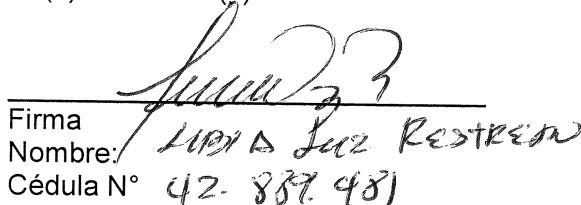 Firma
Nombre: Luz Restrepo
Cédula N° 42.889.481